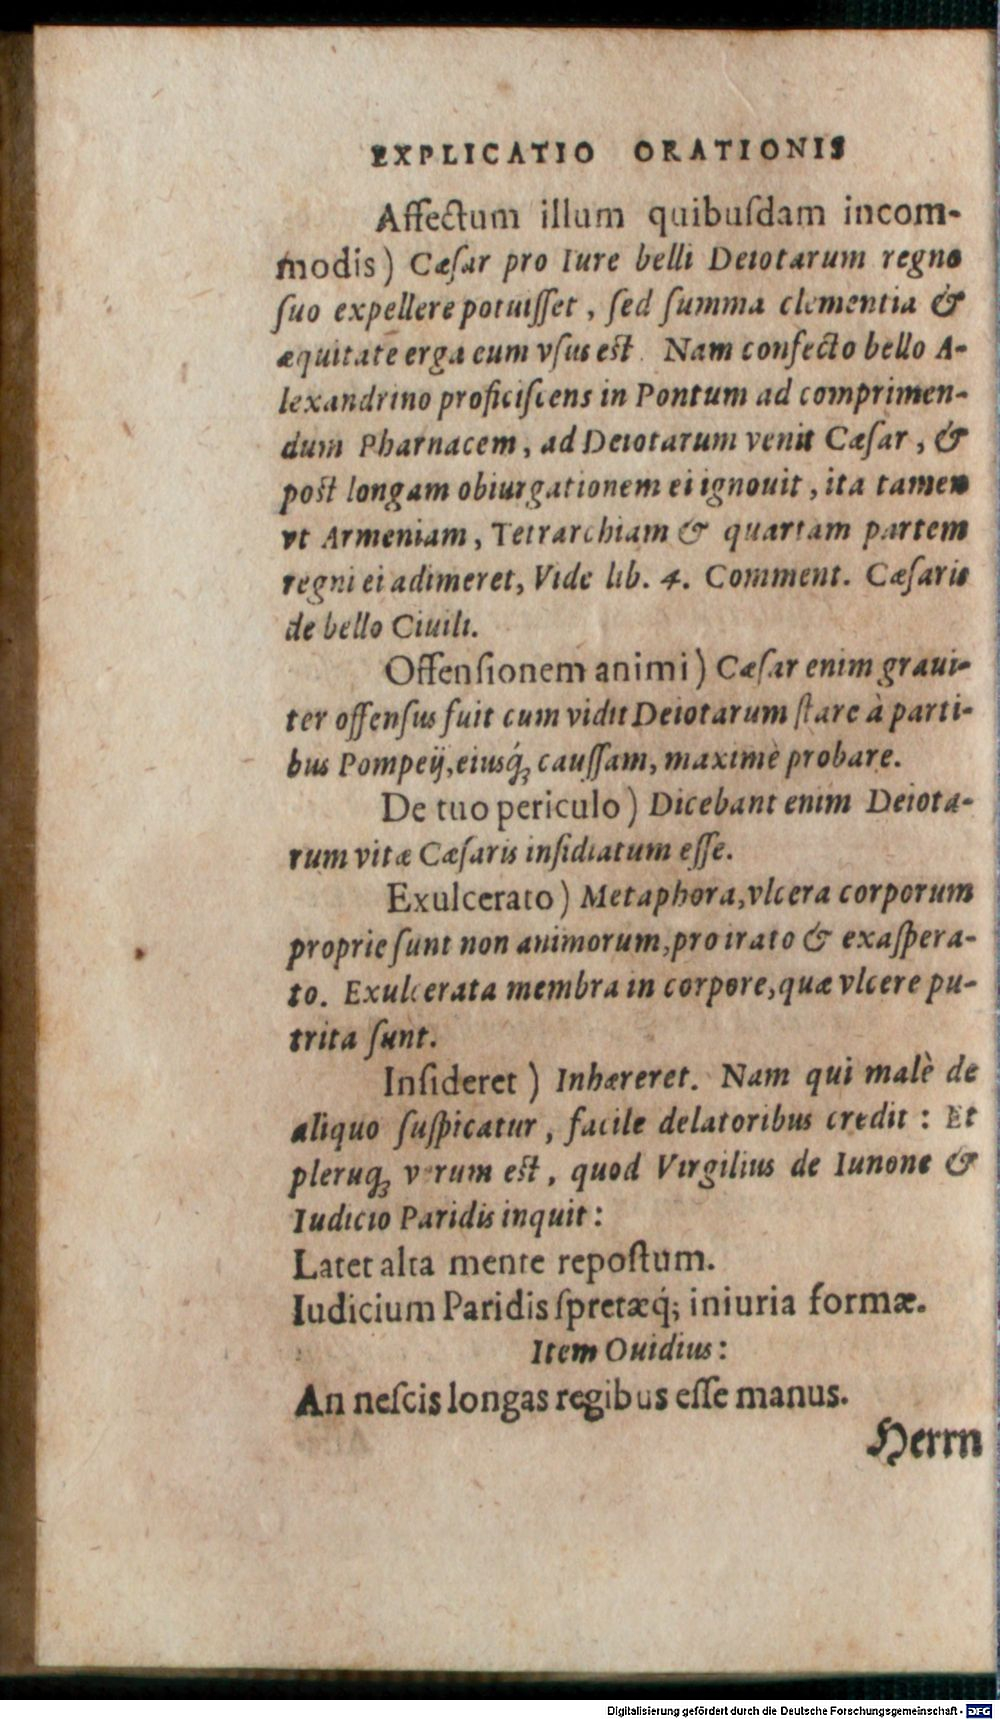 EXPLICATIO ORATIONIS
Affectum illum quibuſdam incom-
modis) Cæſar pro Iure belli Deiotarum regno
ſuo expellere potuiſſet, ſed ſumma clementia &
æquitate erga eum vſus eſt. Nam confecto bello A-
lexandrino proficiſcens in Pontum ad comprimen-
dum Pharnacem, ad Deiotarum venit Cæſar, &
poſt longam obiurgationem ei ignouit, ita tamen
vt Armeniam, Tetrarchiam & quartam partem
regni ei adimeret, Vide lib. 4. Comment. Cæſaris
de bello Ciuili.
Offenſionem animi) Cæſar enim graui-
ter offenſus fuit cum vidit Deiotarum ſtare à parti-
bus Pompeij, eiusq́ꝫ cauſſam, maximè probare.
De tuo periculo) Dicebant enim Deiota-
rum vitæ Cæſaris inſidiatum eſſe.
Exulcerato) Metaphora, vlcera corporum
proprie ſunt non animorum, pro irato & exaſpera-
to. Exulcerata membra in corpore, quæ vlcere pu-
trita ſunt.
Inſideret) Inhæreret. Nam qui malè de
aliquo ſuſpicatur, facile delatoribus credit: Et
pleruqꝫ verum eſt, quod Virgilius de Iunone &
Iudicio Paridis inquit:
Latet alta mente repoſtum.
Iudicium Paridis ſpretæq́; iniuria formæ.
Item Ouidius:
An neſcis longas regibus eſſe manus.
Herrn
Digitalisierung gefördert durch die Deutsche Forschungsgemeinschaft - DFG